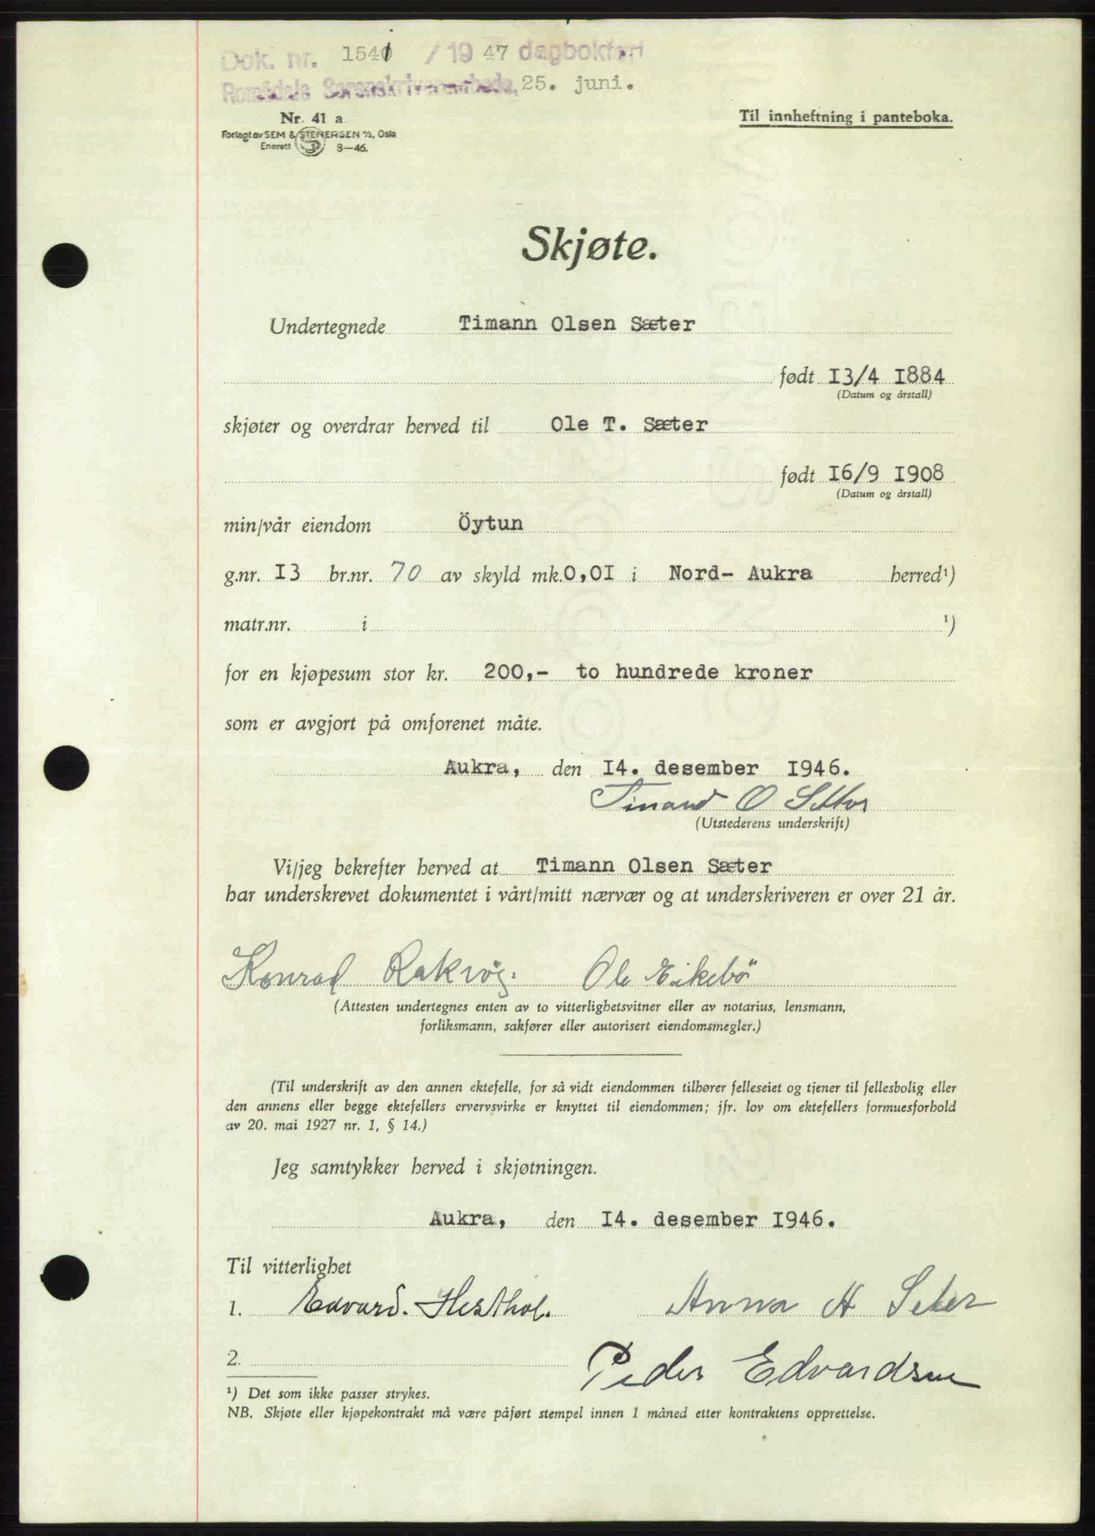 Dok. nr. 1541 / 19 47 dagbokført
Romsdals Sorenskriverembede, 25. juni.
Nr. 41 a
Til innheftning i panteboka.
Forlagt av SEM & STENERSEN A/S, Oslo
Enerett 8—46.
Skjøte.
Undertegnede Timann Olsen Sæter
født 13/4 1884
(Datum og årstall)
skjøter og overdrar herved til Ole T. Sæter
født 16/9 1908
(Datum og årstall)
min/vår eiendom Öytun
g.nr. 13 br.nr. 70 av skyld mk. 0,01 i Nord- Aukra herred¹)
matr.nr. i ¹)
for en kjøpesum stor kr. 200,- to hundrede kroner
som er avgjort på omforenet måte.
Aukra, den 14. desember 1946.
O
(Utstederens underskrift)
Vi/jeg bekrefter herved at Timann Olsen Sæter
har underskrevet dokumentet i vårt/mitt nærvær og at underskriveren er over 21 år.
Konrad Rakvåg. Ole Eikebö
(Attesten undertegnes enten av to vitterlighetsvitner eller av notarius, lensmann,
forliksmann, sakfører eller autorisert eiendomsmegler.)
(Til underskrift av den annen ektefelle, for så vidt eiendommen tilhører felleseiet og tjener til fellesbolig eller
den annens eller begge ektefellers ervervsvirke er knyttet til eiendommen; jfr. lov om ektefellers formuesforhold
av 20. mai 1927 nr. 1, § 14.)
Jeg samtykker herved i skjøtningen.
Aukra, den 14. desember 1946.
Til vitterlighet
1. Edvard. Hesthol. Anna H Seter
2. Peder Edvardsen
¹) Det som ikke passer strykes.
NB. Skjøte eller kjøpekontrakt må være påført stempel innen 1 måned etter kontraktens opprettelse.